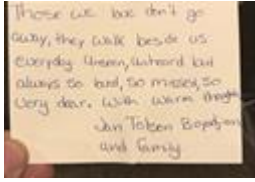 Those we love don't go
away, they walk beside us
everyday. Unseen, unheard but
always so loved, so missed, so
very dear. With warm thoughts
Jan
and family